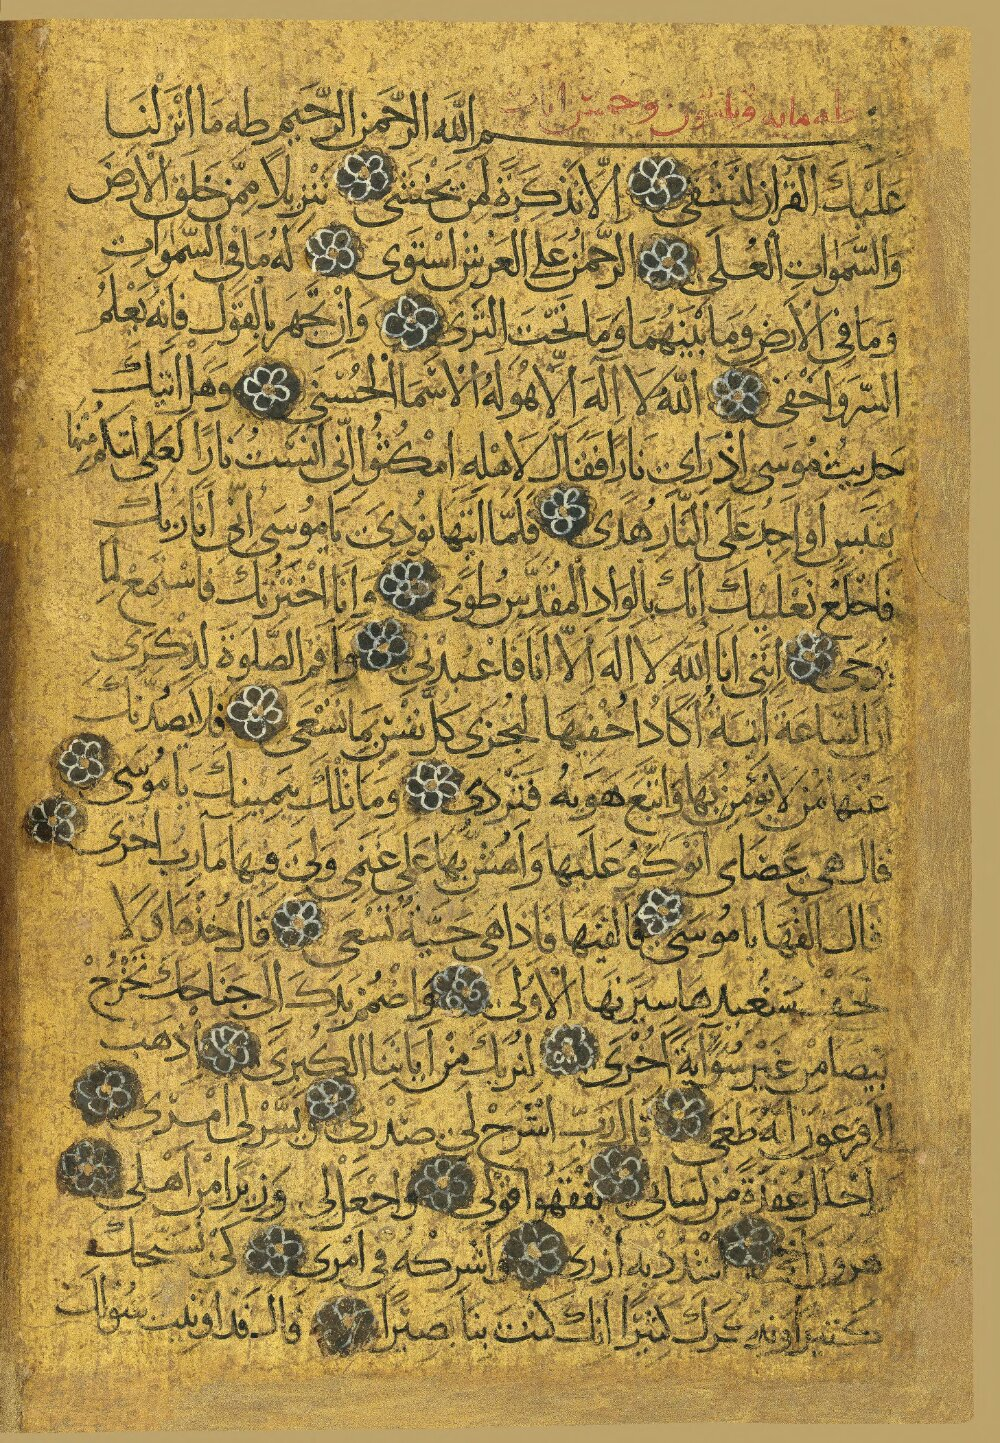 طه مايه وثلثون وخمس ايات
بسم الله الرحمن الرحيم طه ما انزلنا
عليك القرآن لتشقى الا تذكرة لمن يخشى تنزيلا ممن خلق الارض
والسموات العلى الرحمن على العرش استوى له ما في السموات
وما في الارض وما بينهما وما تحت الثرى وان تجهر بالقول فانه يعلم
السر واخفى الله لا اله الا هو له الاسماء الحسنى وهل اتيك
حديث موسى اذ راى نارا فقال لاهله امكثوا انى آنست نارا لعلى آتيكم منها
بقبس او اجد على النار هدى فلما اتيها نودى يا موسى انى انا ربك
فاخلع نعليك انك بالواد المقدس طوى وانا اخترتك فاستمع لما
يوحى اننى انا الله لا اله الا انا فاعبدنى واقم الصلوة لذكرى
ان الساعة آتية اكاد اخفيها لتجزى كل نفس بما تسعى فلا يصدنك
عنها من لا يؤمن بها واتبع هويه فتردى وما تلك بيمينك يا موسى
قال هى عصاى اتوكؤ عليها واهش بها على غنمى ولى فيها مآرب اخرى
قال القها يا موسى فالقيها فاذا هى حية تسعى قال خذها ولا
تخف سنعيدها سيرتها الاولى واضمم يدك الى جناحك تخرج
بيضا من غير سوء آية اخرى لنريك من آياتنا الكبرى اذهب
الى فرعون انه طغى قال رب اشرح لى صدرى ويسر لى امرى
احلل عقدة من لسانى يفقهوا قولى واجعل لى وزيرا من اهلى
هرون اخى اشدد به ازرى واشركه فى امرى كى نسبحك
كثيرا ونذكرك كثيرا انك كنت بنا بصيرا قال قد اوتيت سؤلك